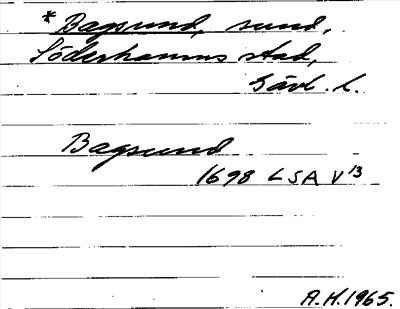 * Bagsund, sund,
Söderhamns stad,
Gävl. l.
Bagsund
1698 LSA V 13
A.H. 1965.